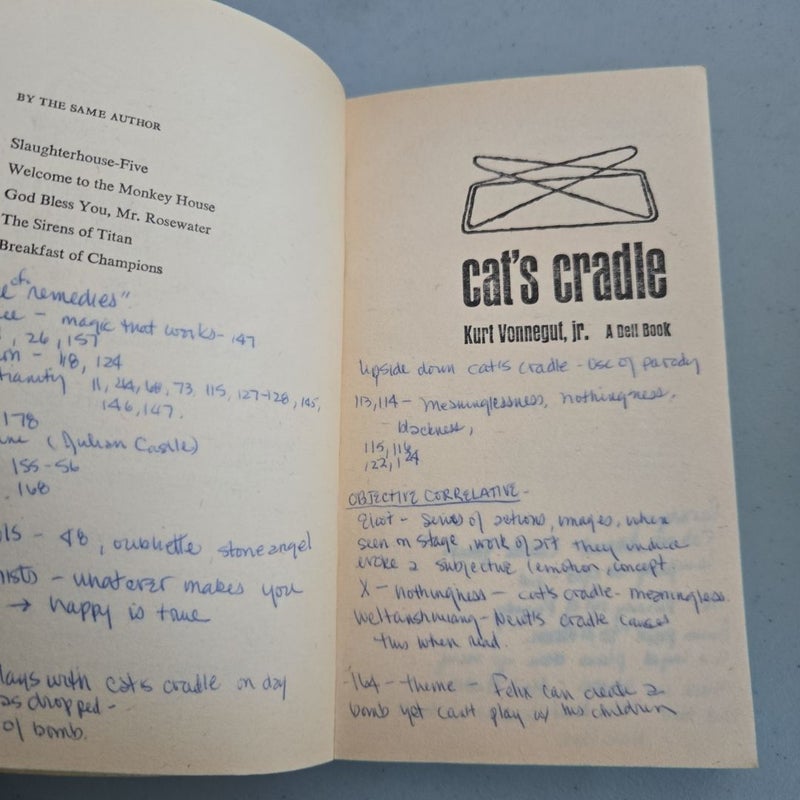 BY THE SAME AUTHOR
Slaughterhouse-Five
Welcome to the Monkey House
God Bless You, Mr. Rosewater
The Sirens of Titan
Breakfast of Champions
"remedies"
magic that works - 147
, 26, 157
- 118, 124
11, 44, 68, 73, 115, 127-128, 145,
146, 147.
178
(Julian Castle)
155-56
168
- 48, oubliette, stone angel
- whatever makes you
→ happy is true
lays with cat's cradle on day
as dropped -
of bomb.
cat's cradle
Kurt Vonnegut, jr. A Dell Book
Upside down cat's cradle - use of parody
113, 114 - meaninglessness, nothingness,
- blackness,
115, 116
122, 124
OBJECTIVE CORRELATIVE -
Eliot - series of actions, images, when
seen on stage, work of art they induce
evoke a subjective (emotion, concept
X - nothingness - cat's cradle - meaningless.
Weltanshauung - Newt's cradle causes
this when read.
-164 - theme - Felix can create a
bomb yet can't play w/ his children